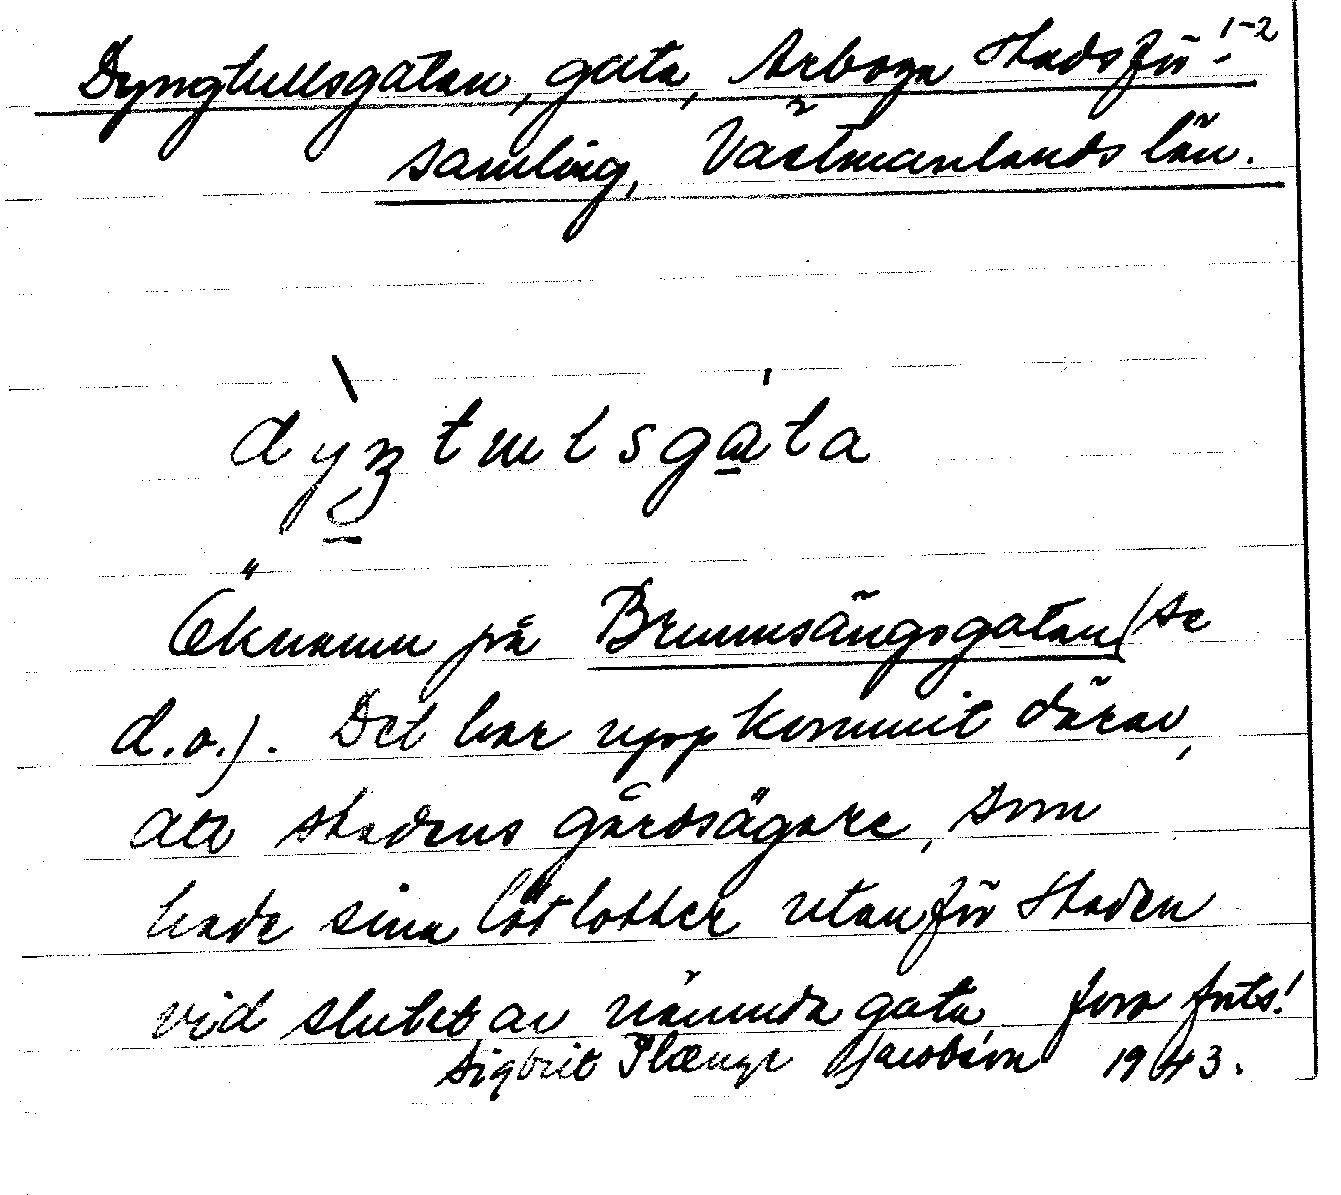 Dyngtullsgatan, gata, Arboga Stadsför- 1-2
samling, Västmanlands län.
Öknamn på Brunnsängsgatan (se
d.o.). Det har uppkommit därav,
att stadens gårdsägare, som
hade sina lötlotter utanför staden
vid slutet av nämnda gata, fora forts!
Sigbrit Plænge Jacobson 1943.